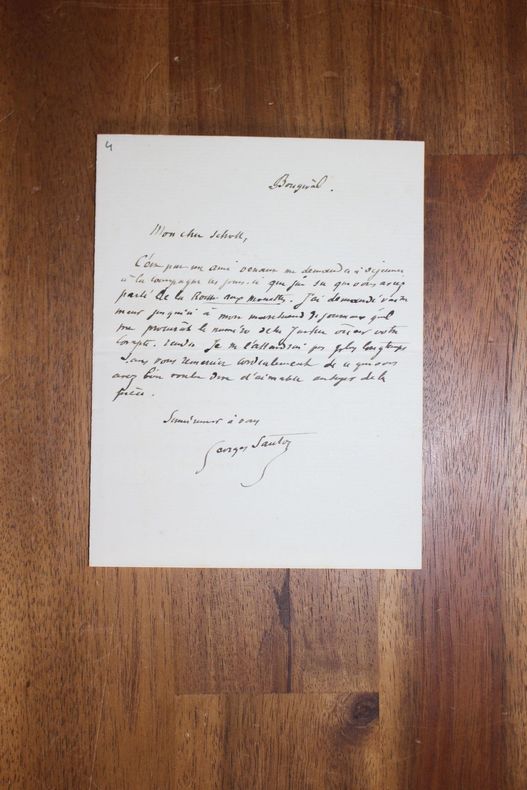 4
Bougival.
Mon cher Scholl,
C'est par un ami venant me demander à déjeuner
à la campagne ces jours-ci que j'ai su que vous avez
parlé de la Roche aux mouettes. J'ai demandé
jusqu'ici à mon marchand de journaux qu'il
me procurât le numéro de la où est votre
compte-rendu. Je n'attendrai pas plus longtemps
sans vous remercier cordialement de ce que vous
avez bien voulu dire d'aimable au sujet de la
pièce.
Sincèrement à vous
Georges